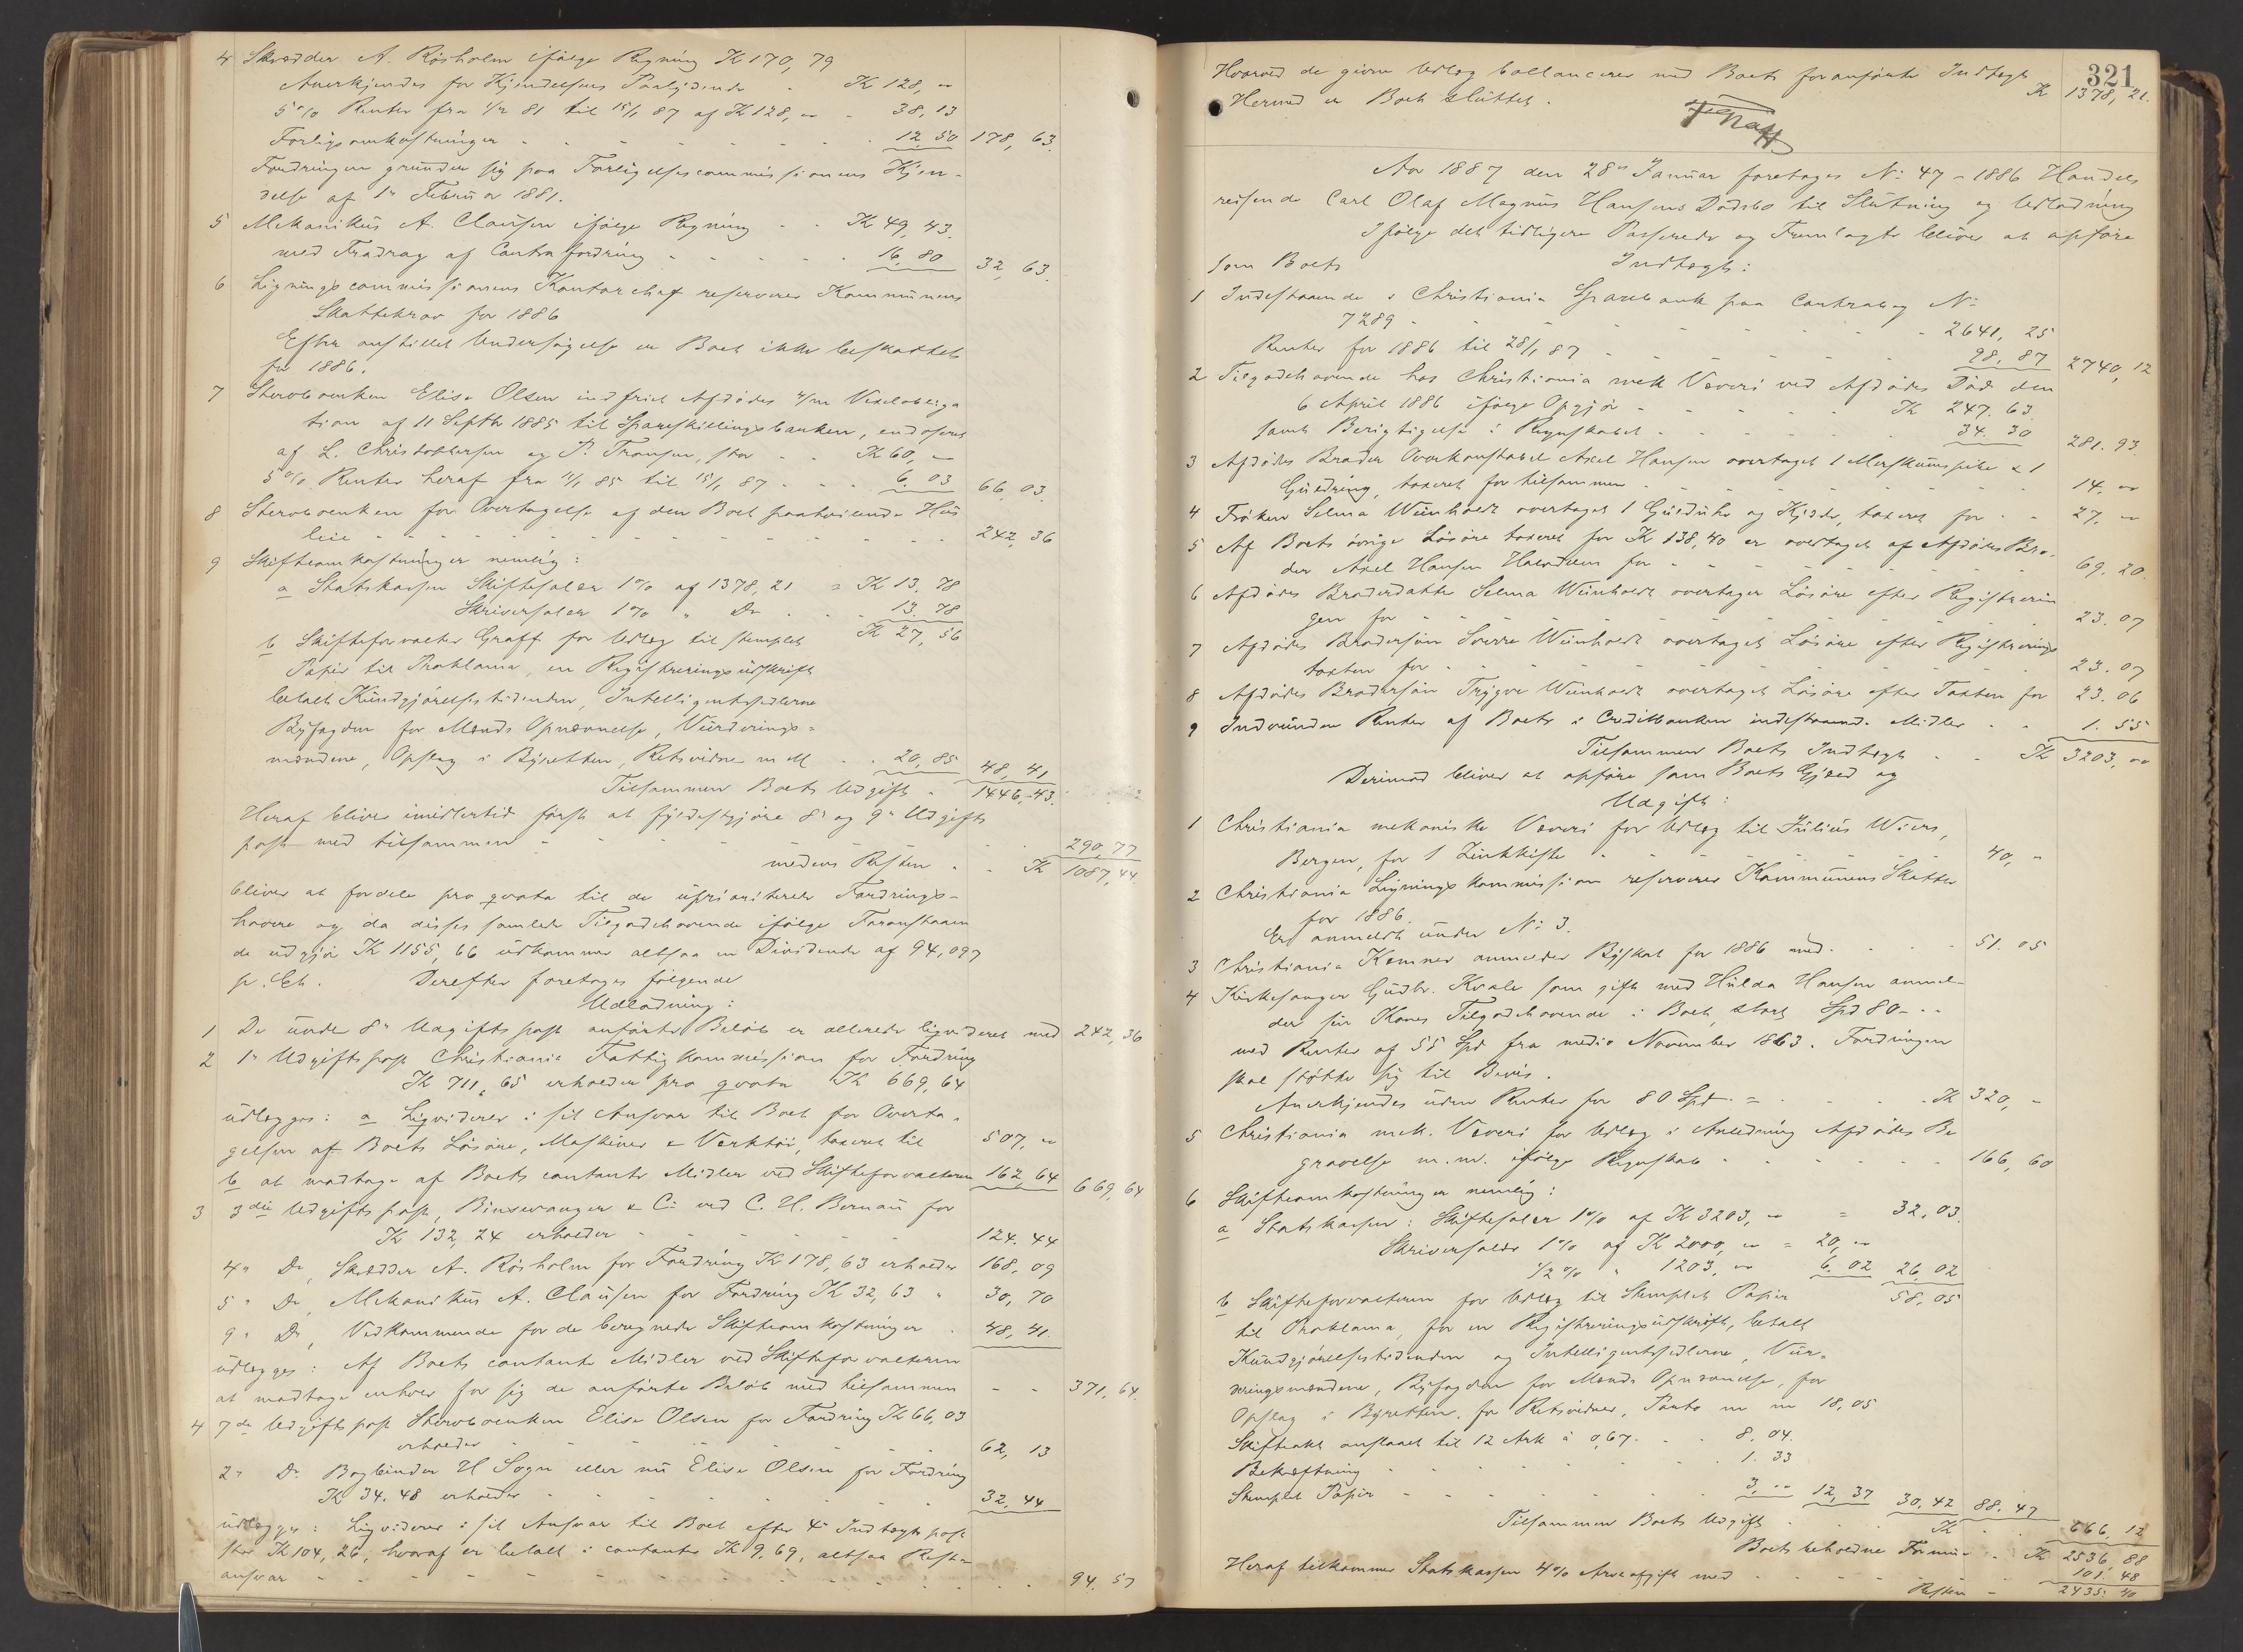 4 Skrædder A. Røsholm ifølge Regning K 170,79
Anerkjendes for Kjendelsens Paalydende - K 128,"
5 % Renter fra 1/2 81 til 15/1 87 af K 128,- - 38,13
Forligsomkostninger - - - 12,50 178,63.
Fordringen grunder sig paa Forligelsescommissionens Kjen-
delse af 1n Februar 1881.
5 Mekanikus A. Clausen ifølge Regning - - K 49,43.
med Fradrag af Contrafordring - - - 16,80 32,63.
6 Ligningscommissionens Kontorchef reserverer Kommunens
Skattekrav for 1886
Efter anstillet Undersøgelse er Boet ikke beskattet
for 1886.
7 Stervboenken Elise Olsen indfriet Afdødes Vexelobliga
tion af 11 Septbr 1885 til Spareskillingsbanken, endosseret
af L. Christophersen og P. Fransen, stor - - K 60,-
5 % Renter heraf fra 11/1 85 til 15/1 87 - - - 6.03 66,03.
8 Stervboenken for Overtagelse af den Boet paahvilende Hus
leie - - - 242,36
9 Skifteomkostninger nemlig:
a Statskassen Skiftesalær 1% af 1378,21 = K 13.78
Skriversalær 1% " Do - - 13.78
K 27,56
b Skifteforvalter Graff for Udlæg til stemplet
Papir til Proklama, en Registreringsudskrift
betalt Kundgjørelsestidenden, Intelligentssedlerne
Byfogden for Mænds Opnævnelse, Vurderings-
mændene, Opslag i Byretten, Retsvidne m M - - 20,85 48,41
Tilsammen Boets Udgift - 1446,43.
Heraf bliver imidlertid først at fyldestgjøre 8n og 9n Udgifts
post med tilsammen - - - 290,77
medens Resten - - K 1087,44.
bliver at fordele pro qvota til de uprioriterede Fordrings-
havere og da disses samlede Tilgodehavende ifølge Foranstaaen
de udgjør K 1155,66 udkommer altsaa en Dividende af 94,097
p. Ct. Derefter foretages følgende
Udlodning:
1 De under 8n Udgiftspost anførte Beløb er allerede ligvideret med 242,36
2 1n Udgiftspost Christiania Fattigkommission for Fordring
K 711,65 erholder pro qvota K 669,64
udlægges: a Ligviderer i sit Ansvar til Boet for Overta-
gelsen af Boets Løsøre, Maskiner & Verktøi, taxeret til 507,"
b at modtage af Boets contante Midler ved Skifteforvalteren 162,64 669,64
3 3die Udgiftspost, Binswanger & Co ved C. H. Bernau for
K 132,24 erholder - - - 124.44
4n Do, Skrædder A. Røsholm for Fordring K 178,63 erholder 168,09
5n Do, Mekanikus A. Clausen for Fordring K 32,63 " 30,70
9n Do, Vedkommende for de beregnede Skifteomkostninger - 48,41.
udlægges: Af Boets contante Midler ved Skifteforvalteren
at modtage enhver for sig de anførte Beløb med tilsammen - - 371,64.
4 7de Udgiftspost Stervboenken Elise Olsen for Fordring K 66,03
erholder - - - 62,13
2n Do Bogbinder H Sogn eller nu Elise Olsen for Fordring
K 34.48 erholder - - - 32,44
udlægges: Ligviderer i sit Ansvar til Boet efter 4n Indtægtspost
stor K 104,26, hvoraf er betalt i contanter K 9,69, altsaa Rest-
ansvar - - - 94.57
321
Hvorved de givne Udlæg ballancerer med Boets foranførte Indtægt
K 1378,21.
Hermed er Boet sluttet.
Graff
Aar 1887 den 28n Januar foretages No 47 - 1886 Handels
reisende Carl Olaf Magnus Hansens Dødsbo til Slutning og Udlodning
Ifølge det tidligere Passerede og Fremlagte bliver at opføre
som Boets Indtægt:
1 Indestaaende i Christiania Sparebank paa Contrabog No
7289 - - - 2641,25
Renter for 1886 til 28/1 87 - - - 98,87 2740,12
2 Tilgodehavende hos Christiania mek Væveri ved Afdødes Død den
6 April 1886 ifølge Opgjør - - - K 247.63.
samt Berigtigelse i Regnskabet - - - 34.30 281.93.
3 Afdødes Broder Overkonstabel Axel Hansen overtaget 1 Merskumspibe & 1
Guldring, taxeret for tilsammen - - - 14,"
4 Frøken Selma Wünholdt overtaget 1 Guldluhr og Kjæde, taxeret for - - 27,"
5 Af Boets øvrige Løsøre taxeret for K 138,40 er overtaget af Afdødes Bro-
der Axel Hansen Halvdelen for - - - 69.20.
6 Afdødes Broderdatter Selma Wünholdt overtager Løsøre efter Registrerin
gen for - - - 23.07
7 Afdødes Brodersøn Sverre Wünholdt overtaget Løsøre efter Registrerings
taxten for - - - 23.07
8 Afdødes Brodersøn Trygve Wünholdt overtaget Løsøre efter Taxten for 23.06
9 Indvundne Renter af Boets i Creditbanken indestaaende Midler - - 1.55
Tilsammen Boets Indtægt - - K 3203,"
Derimod bliver at opføre som Boets Gjæld og
Udgift:
1 Christiania mekaniske Væveri for Udlæg til Julius Wiers,
Bergen, for 1 Zinkkiste - - - 40,"
2 Christiania Ligningskommission reserverer Kommunens Skatter
for 1886.
Er anmeldt under No 3.
3 Christiania Kemner anmelder Byskat for 1886 med - - - 51.05
4 Kirkesanger Gudbr. Kvale som gift med Hulda Hansen anmel-
der sin Kones Tilgodehavende i Boet, stort Spd 80 - - -
med Renter af 55 Spd fra medio November 1863. Fordringen
skal støtte sig til Bevis.
Anerkjendes uden Renter for 80 Spd = - - - K 320,-
5 Christiania mek. Væveri for Udlæg i Anledning Afdødes Be
gravelse m.m. ifølge Regnskab - - - 166,60
6 Skifteomkostninger nemlig:
a Statskassen: Skiftesalær 1% af K 3203," = 32,03.
Skriversalær 1% af K 2000," = 20,"
1/2 % " 1203," 6.02 26,02
58,05
b Skifteforvalteren for Udlæg til Stemplet Papir
til Proklama, for en Registreringsudskrift, betalt
Kundgjørelsestidenden og Intelligentssedlerne, Vur-
deringsmændene, Byfogden for Mænds Opnævnelse, for
Opslag i Byretten, for Retsvidner, Porto m m 18,05
Skifteakt anslaaet til 12 Ark à 0,67 - - - 8.04.
Bekræftning - - - 1.33
Stemplet Papir - - - 3," 12,37 30,42 88.47
Tilsammen Boets Udgift - - - K - - 666,12
Boets beholdne Formue - - K 2536,88
Heraf tilkommer Statskassen 4% Arveafgift med - - - 101:48
Resten - 2435:40